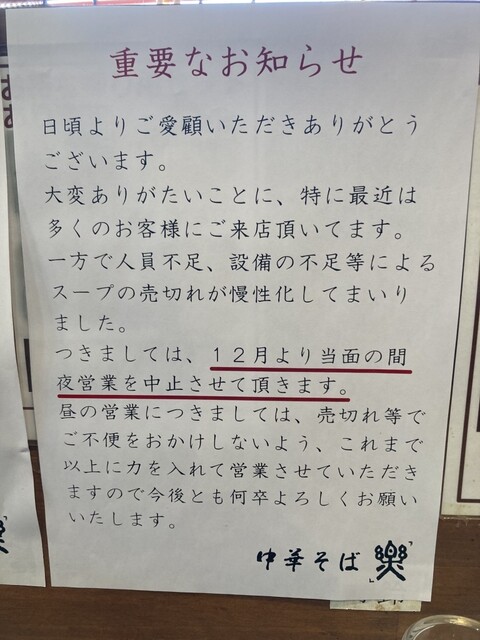 重要なお知らせ
日頃よりご愛顧いただきありがとう
ございます。
大変ありがたいことに、特に最近は
多くのお客様にご来店頂いてます。
一方で人員不足、設備の不足等による
スープの売切れが慢性化してまいり
ました。
つきましては、１２月より当面の間
夜営業を中止させて頂きます。
昼の営業につきましては、売切れ等で
ご不便をおかけしないよう、これまで
以上に力を入れて営業させていただき
ますので今後とも何卒よろしくお願い
いたします。
中華そば 「樂」